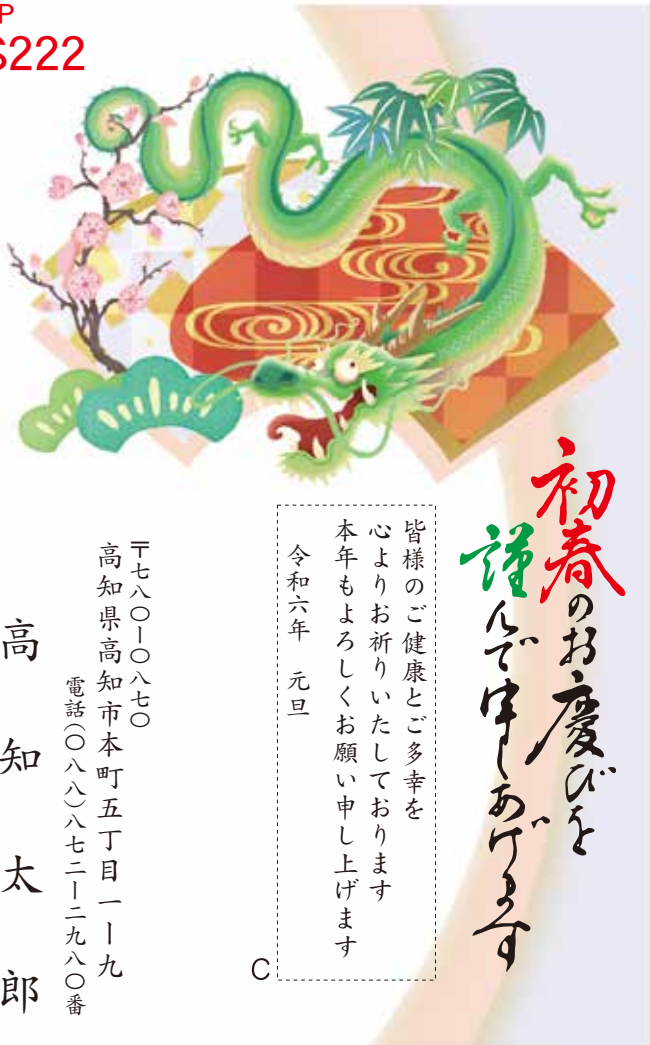 P
S222
初春のお慶びを
謹んで申しあげます
皆様のご健康とご多幸を
心よりお祈りいたしております
本年もよろしくお願い申し上げます
令和六年　元旦
C
〒七八〇ー〇八七〇
高知県高知市本町五丁目一ー九
電話(〇八八)八七二ー二九八〇番
高知太郎